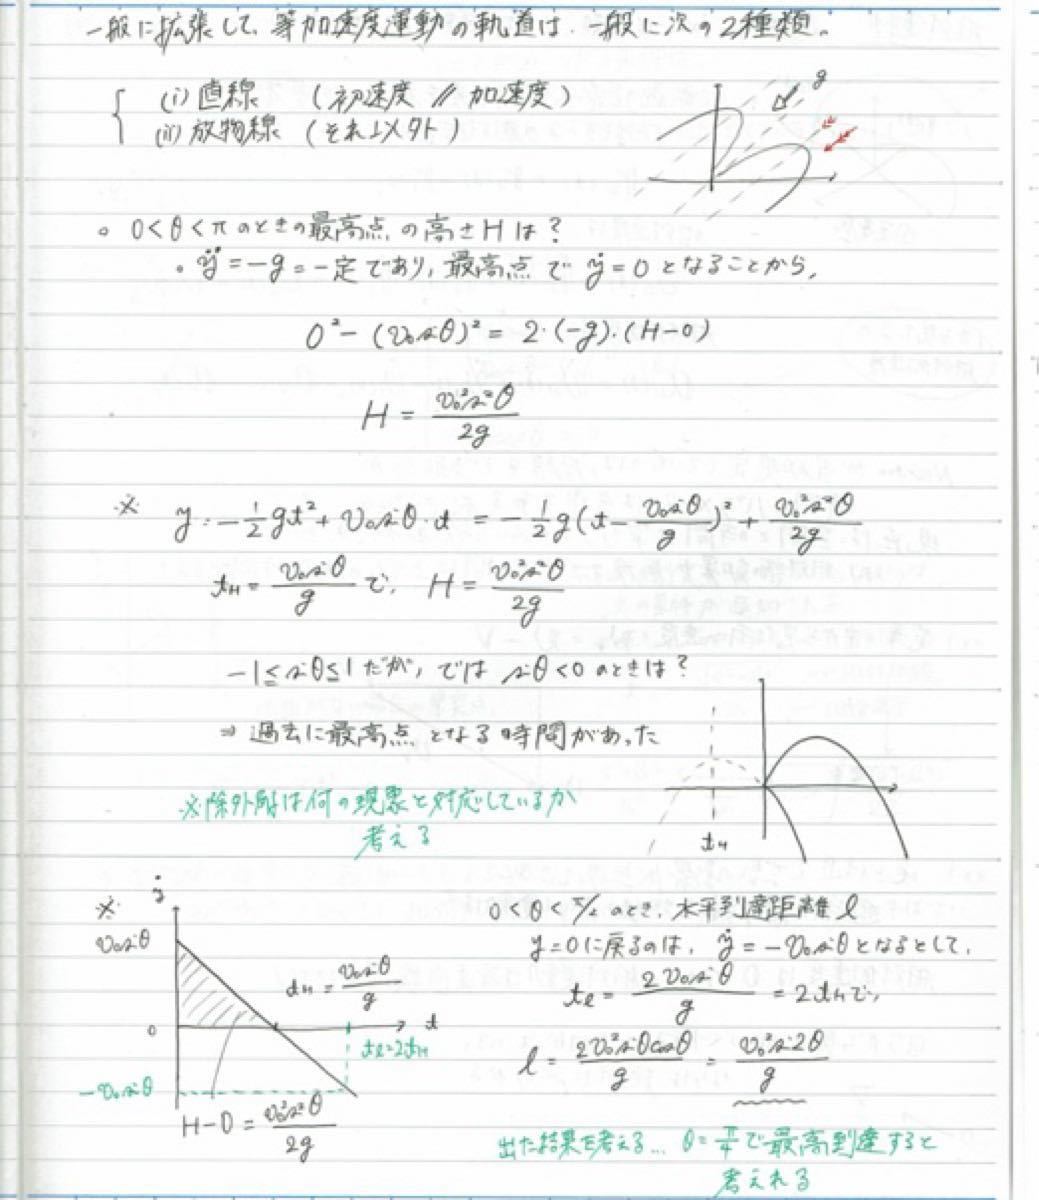 一般に拡張して、等加速度運動の軌道は、一般に次の2種類。
(i) 直線 (初速度 // 加速度)
(ii) 放物線 (それ以外)
g
0<θ<πのときの最高点の高さHは?
ÿ=-g=一定であり、最高点でẏ=0となることから、
0²-(v₀sinθ)²=2·(-g)·(H-0)
H = v₀²sin²θ/2g
※ y=-1/2gt²+v₀sinθ·t = -1/2g(t-v₀sinθ/g)²+v₀²sin²θ/2g
t_H=v₀sinθ/g で、 H=v₀²sin²θ/2g
-1≦sinθ≦1だが、では sinθ<0のときは?
⇒ 過去に最高点となる時間があった
※除外解は何の現象と対応しているか
考える
t_H
※ ẏ
v₀sinθ
0
-v₀sinθ
t_H=v₀sinθ/g
t
t_l=2t_H
H-0=v₀²sin²θ/2g
0<θ<π/2のとき、水平到達距離l
y=0に戻るのは、ẏ=-v₀sinθとなるとして、
t_l=2v₀sinθ/g=2t_Hで、
l=2v₀²sinθcosθ/g=v₀²sin2θ/g
出た結果を考える... θ=π/4で最高到達すると
考えれる